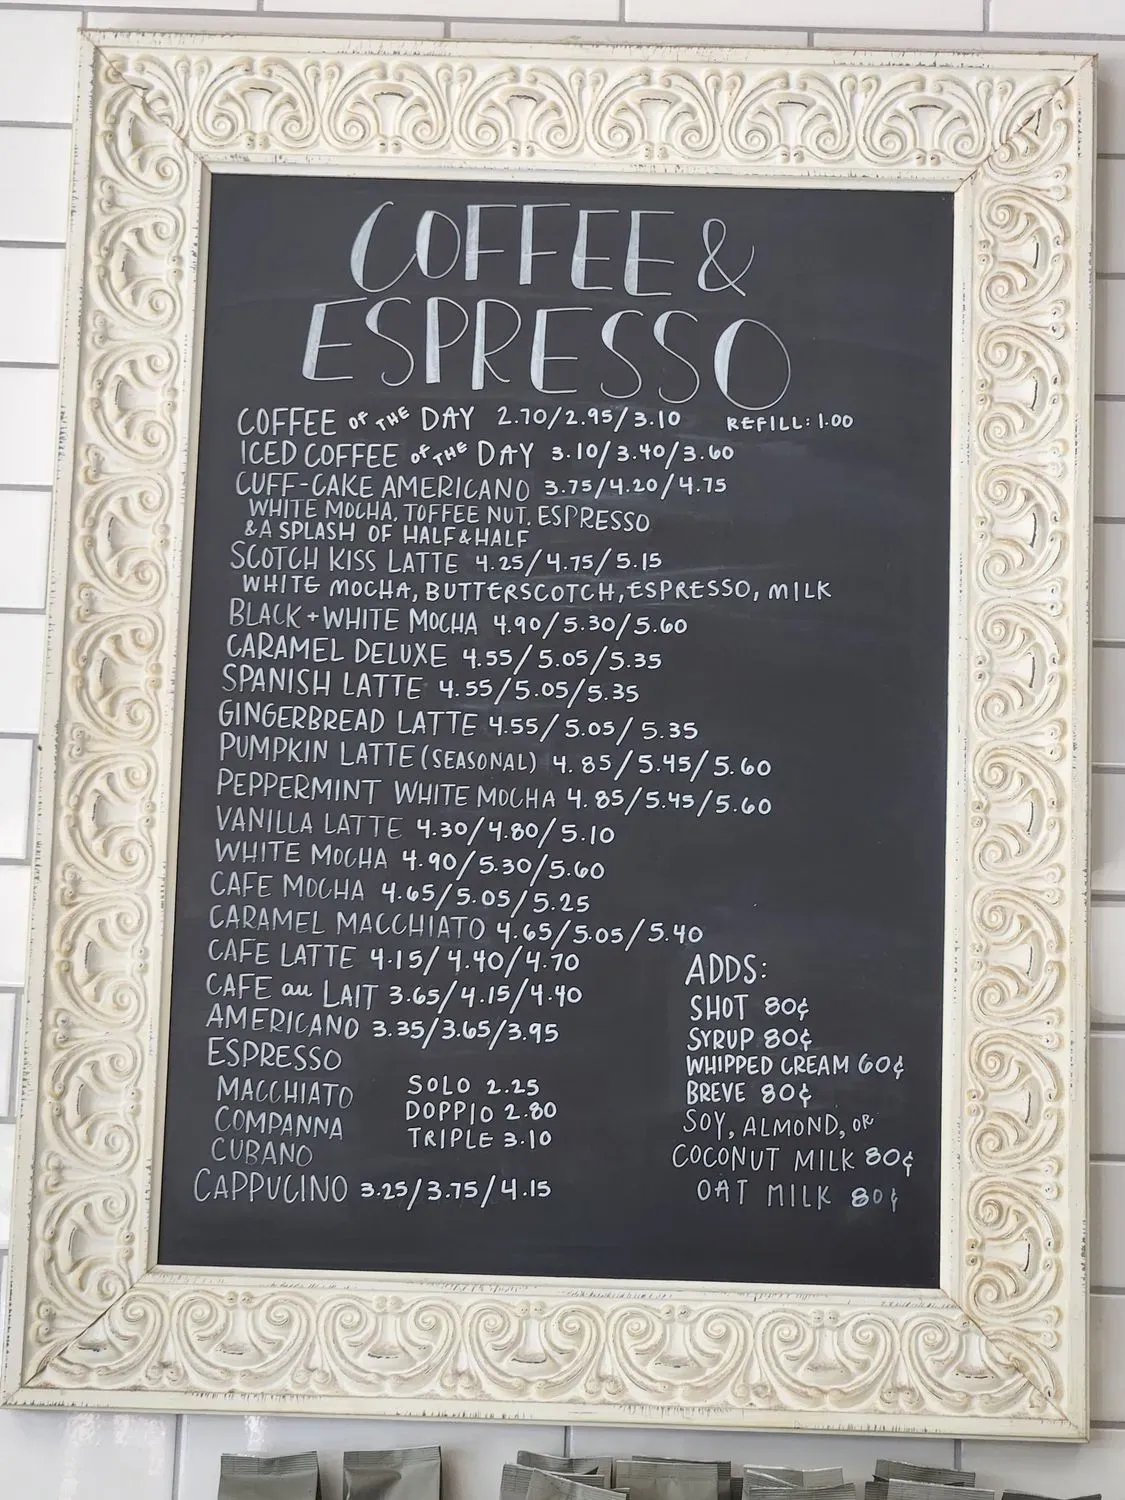 COFFEE &
ESPRESSO
COFFEE OF THE DAY 2.70/2.95/3.10 REFILL: 1.00
ICED COFFEE OF THE DAY 3.10/3.40/3.60
CUFF-CAKE AMERICANO 3.75/4.20/4.75
WHITE MOCHA, TOFFEE NUT, ESPRESSO
& A SPLASH OF HALF & HALF
SCOTCH KISS LATTE 4.25/4.75/5.15
WHITE MOCHA, BUTTERSCOTCH, ESPRESSO, MILK
BLACK + WHITE MOCHA 4.90/5.30/5.60
CARAMEL DELUXE 4.55/5.05/5.35
SPANISH LATTE 4.55/5.05/5.35
GINGERBREAD LATTE 4.55/5.05/5.35
PUMPKIN LATTE (SEASONAL) 4.85/5.45/5.60
PEPPERMINT WHITE MOCHA 4.85/5.45/5.60
VANILLA LATTE 4.30/4.80/5.10
WHITE MOCHA 4.90/5.30/5.60
CAFE MOCHA 4.65/5.05/5.25
CARAMEL MACCHIATO 4.65/5.05/5.40
CAFE LATTE 4.15/4.40/4.70
CAFE au LAIT 3.65/4.15/4.40
AMERICANO 3.35/3.65/3.95
ESPRESSO
MACCHIATO
COMPANNA
CUBANO
SOLO 2.25
DOPPIO 2.80
TRIPLE 3.10
CAPPUCINO 3.25/3.75/4.15
ADDS:
SHOT 80¢
SYRUP 80¢
WHIPPED CREAM 60¢
BREVE 80¢
SOY, ALMOND, OR
COCONUT MILK 80¢
OAT MILK 80¢